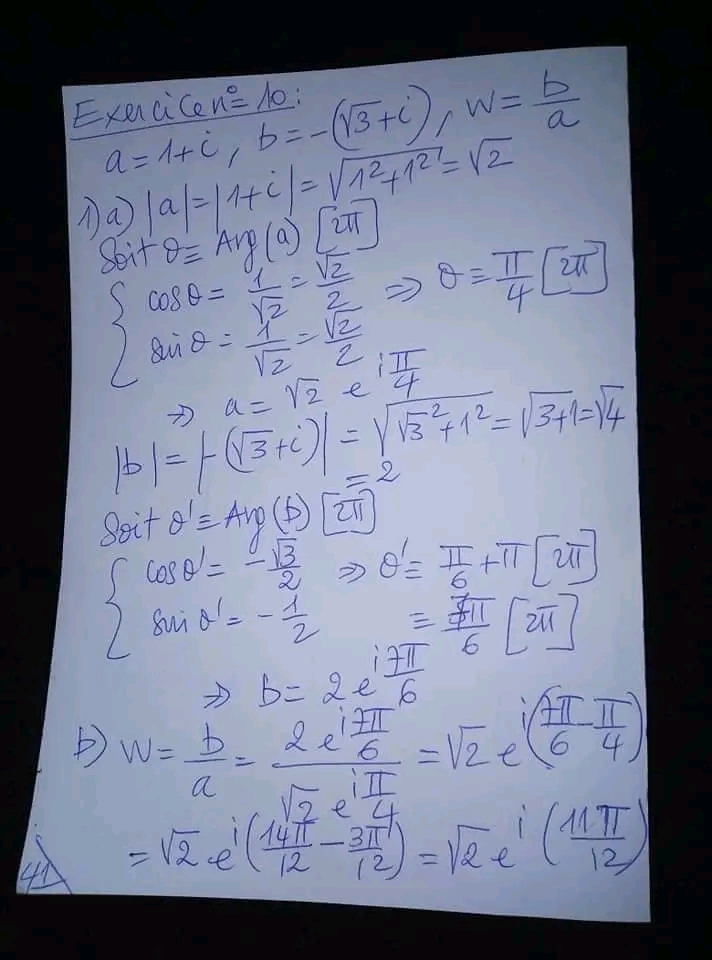 Exercice n°=10:
a=1+i, b=-(√3+i), W=b/a
1)a) |a|=|1+i|=√(1²+1²)=√2
Soit θ≡Arg(a) [2π]
{ cosθ=1/√2=√2/2 ⇒ θ≡π/4 [2π]
sinθ=1/√2=√2/2
⇒ a=√2 e^(iπ/4)
|b|=|-(√3+i)|=√(√3²+1²)=√(3+1)=√4
=2
Soit θ'≡Arg(b) [2π]
{ cosθ'=-√3/2 ⇒ θ'≡π/6+π [2π]
sinθ'=-1/2 ≡7π/6 [2π]
⇒ b=2e^(i7π/6)
b) W=b/a=(2e^(i7π/6))/(√2 e^(iπ/4))=√2 e^(i(7π/6-π/4))
=√2 e^(i(14π/12-3π/12))=√2 e^(i(11π/12))
41